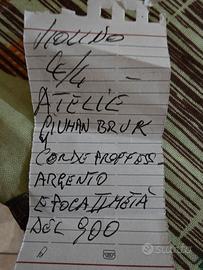 VIOLINO
4/4 -
ATELIE
GIUHAN BRUK
CORDE PROFFES.
ARGENTO
EPOCA II METÀ
DEL 900
subito